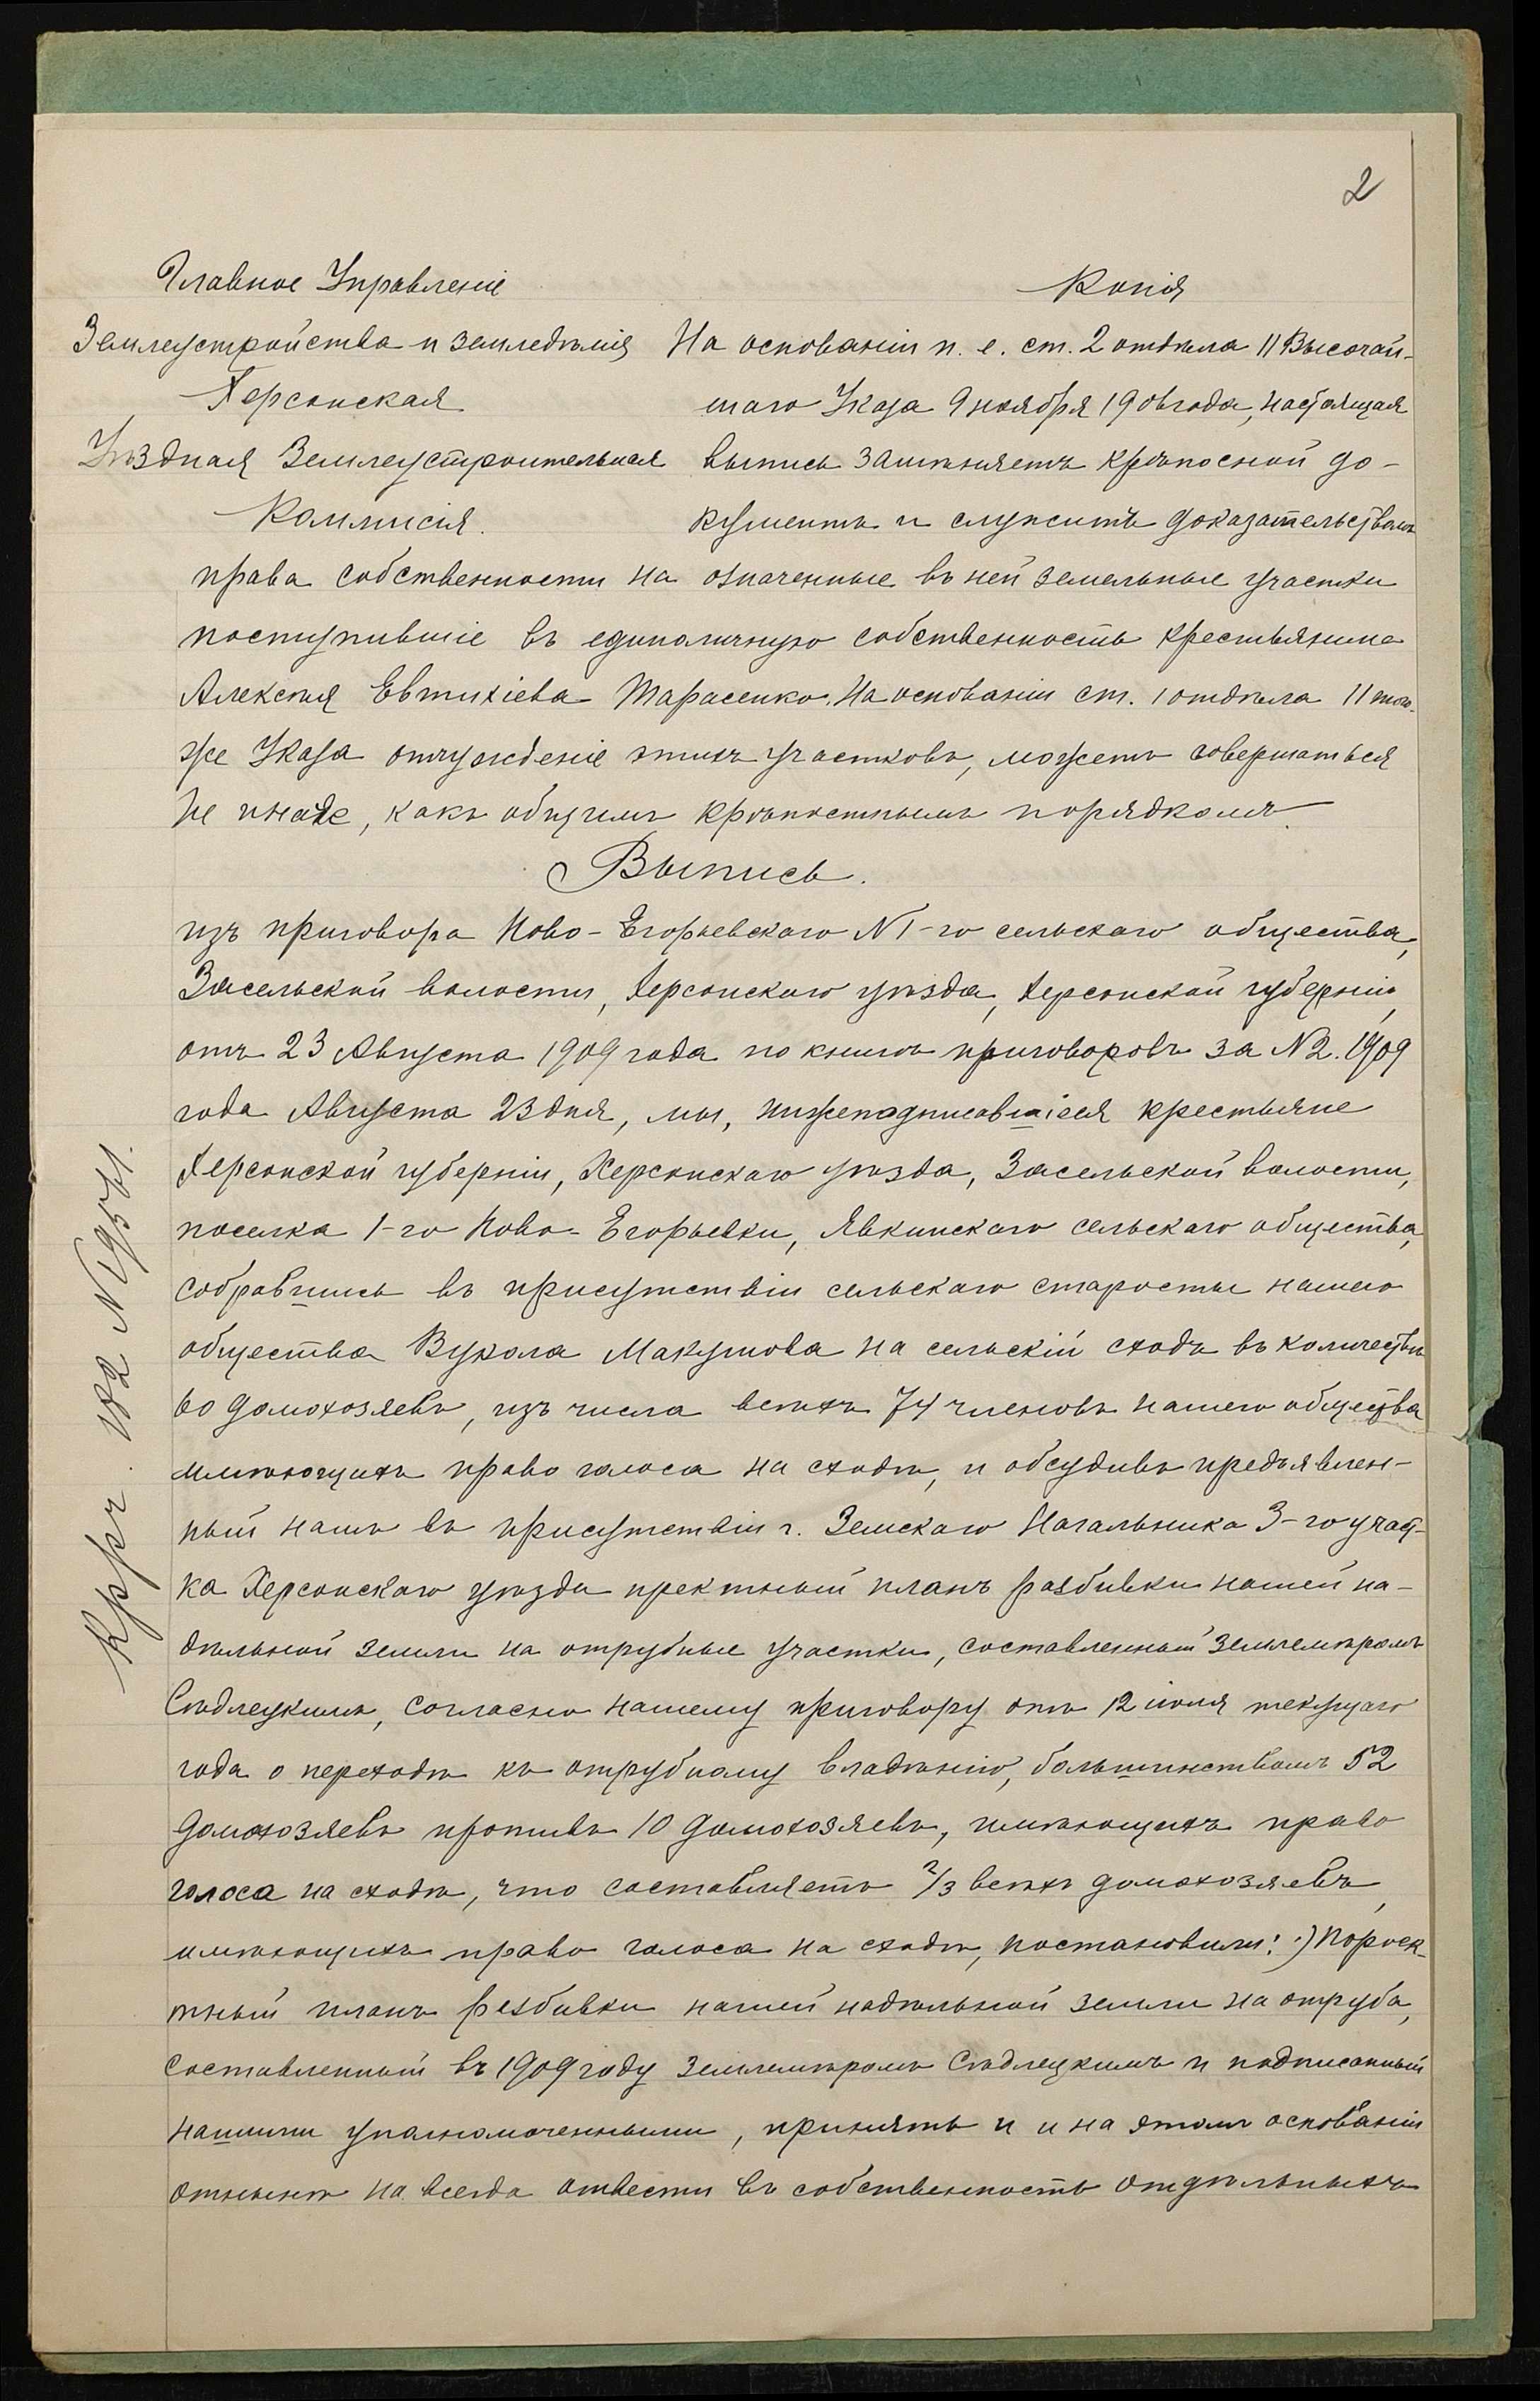 2
Главное Управленіе
Землеустройства и Земледѣлія
Херсонская
Уѣздная Землеустроительная
Коммисія.
Копія
На основаніи п. е. ст. 2 отдѣла II Высочай-
шаго Указа 9 ноября 1906 года, настоящая
выпись замѣняетъ крѣпосной до-
кументъ и служитъ доказательствомъ
права собственности на означенные въ ней земельные участки
поступившіе въ единоличную собственность крестьянина
Алексѣя Евтихіева Тарасенко. На основаніи ст. 1 отдѣла II того-
же Указа отчужденіе этихъ участковъ, можетъ совершаться
не иначе, какъ общимъ крѣпостнымъ порядкомъ.
Выпись.
изъ приговора Ново-Егорьевскаго N 1-го сельскаго общества,
Засельской волости, Херсонскаго уѣзда, Херсонской губерніи,
отъ 23 Августа 1909 года по книгѣ приговоровъ за N 2. 1909
года Августа 23 дня, мы, нижеподписавшіеся крестьяне
Херсонской губерніи, Херсонскаго уѣзда, Засельской волости,
поселка 1-го Ново-Егорьевки, Явкинскаго сельскаго общества,
собравшись въ присутствіи сельскаго старосты нашего
общества Вукола Макушова на сельскій сходъ въ количествѣ
60 домохозяевъ, изъ числа всѣхъ 74 членовъ нашего общества
имѣющихъ право голоса на сходѣ, и обсудивъ предъявлен-
ный намъ въ присутствіи г. Земскаго Начальника 3-го участ-
ка Херсонскаго уѣзда пректный планъ разбивки нашей на-
дѣльной земли на отрубные участки, составленный землемѣромъ
Сѣдлецкимъ, согласно нашему приговору отъ 12 іюля текущаго
года о переходѣ къ отрубному владѣнію, большинствомъ 52
домохозяевъ противъ 10 домохозяевъ, имѣющихъ право
голоса на сходѣ, что составляетъ 2/3 всѣхъ домохозяевъ,
имѣющихъ право голоса на сходѣ, постановили: 1) Пороек-
тный планъ разбивки нашей надѣльной земли на отруба,
составленный въ 1909 году землемѣромъ Сѣдлецкимъ и подписанный
нашими уполномоченными, принять и и на этомъ основаніи
отнынѣ на всегда отвести въ собственность отдѣльныхъ